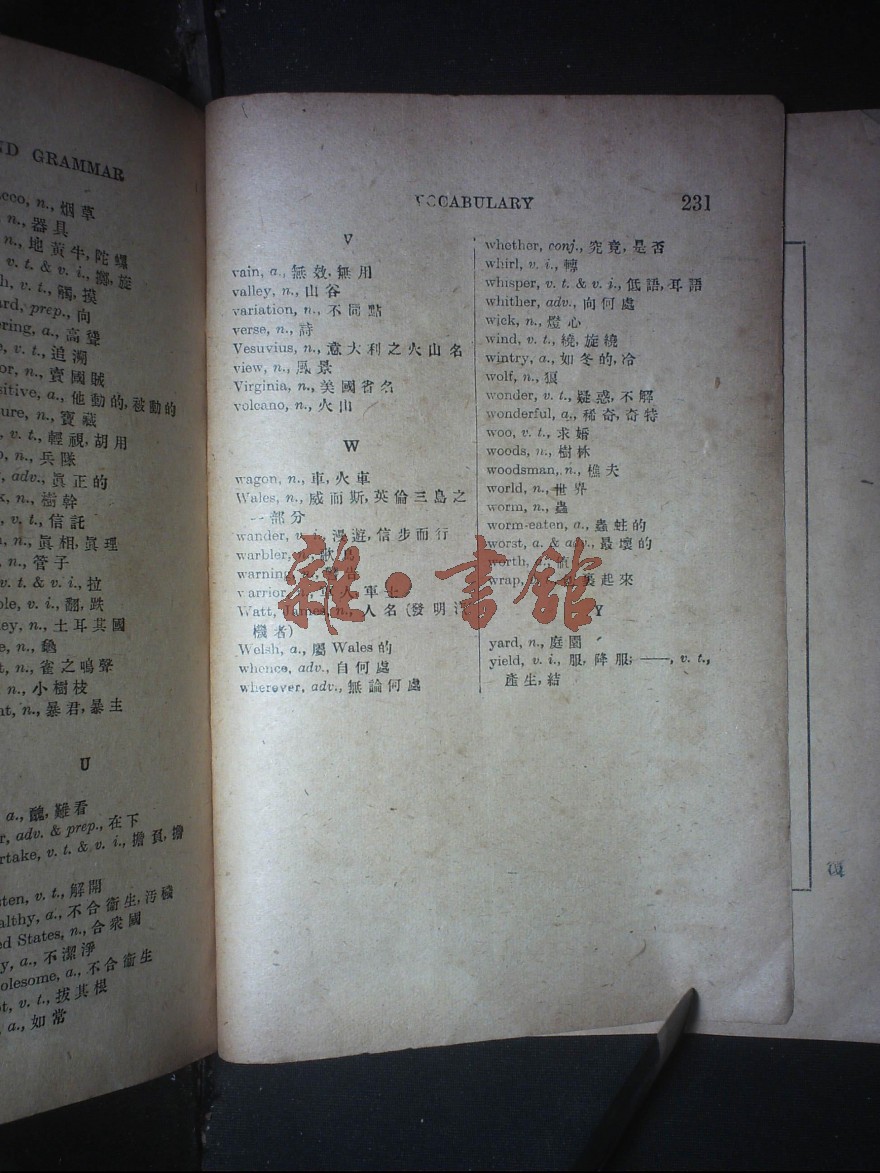 ND GRAMMAR
n., 烟草
n., 器具
n., 地黃牛, 陀螺
v. t. & v. i., 擲, 旋
v. t., 觸, 摸
prep., 向
a., 高聳
v. t., 追溯
n., 賣國賊
a., 他動的, 被動的
n., 寶藏
v. t., 輕視, 胡用
n., 兵隊
adv., 眞正的
n., 樹幹
v. t., 信託
n., 眞相, 眞理
n., 管子
v. t. & v. i., 拉
v. i., 翻, 跌
n., 土耳其國
n., 雀之鳴聲
n., 小樹枝
n., 暴君, 暴主
U
a., 醜, 難看
adv. & prep., 在下
v. t. & v. i., 擔負, 擔
v. t., 解開
a., 不合衞生, 汚穢
States, n., 合衆國
a., 不潔淨
a., 不合衞生
v. t., 拔其根
a., 如常
VOCABULARY 231
V
vain, a., 無效, 無用
valley, n., 山谷
variation, n., 不同點
verse, n., 詩
Vesuvius, n., 意大利之火山名
view, n., 風景
Virginia, n., 美國省名
volcano, n., 火山
W
wagon, n., 車, 火車
Wales, n., 威而斯, 英倫三島之
一部分
wander, v. i., 漫遊, 信步而行
warbler, n.,
warning, n., 警告
warrior, n., 軍士
Watt, James, n., 人名 (發明汽
機者)
Welsh, a., 屬 Wales 的
whence, adv., 自何處
wherever, adv., 無論何處
whether, conj., 究竟, 是否
whirl, v. i., 轉
whisper, v. t. & v. i., 低語, 耳語
whither, adv., 向何處
wick, n., 燈心
wind, v. t., 繞, 旋繞
wintry, a., 如冬的, 冷
wolf, n., 狼
wonder, v. t., 疑惑, 不解
wonderful, a., 稀奇, 奇特
woo, v. t., 求婚
woods, n., 樹林
woodsman, n., 樵夫
world, n., 世界
worm, n., 蟲
worm-eaten, a., 蟲蛀的
worst, a. & adv., 最壞的
worth, a., 値
wrap, 包裹起來
Y
yard, n., 庭園
yield, v. i., 服, 降服; ——, v. t.,
產生, 結
雜·書館